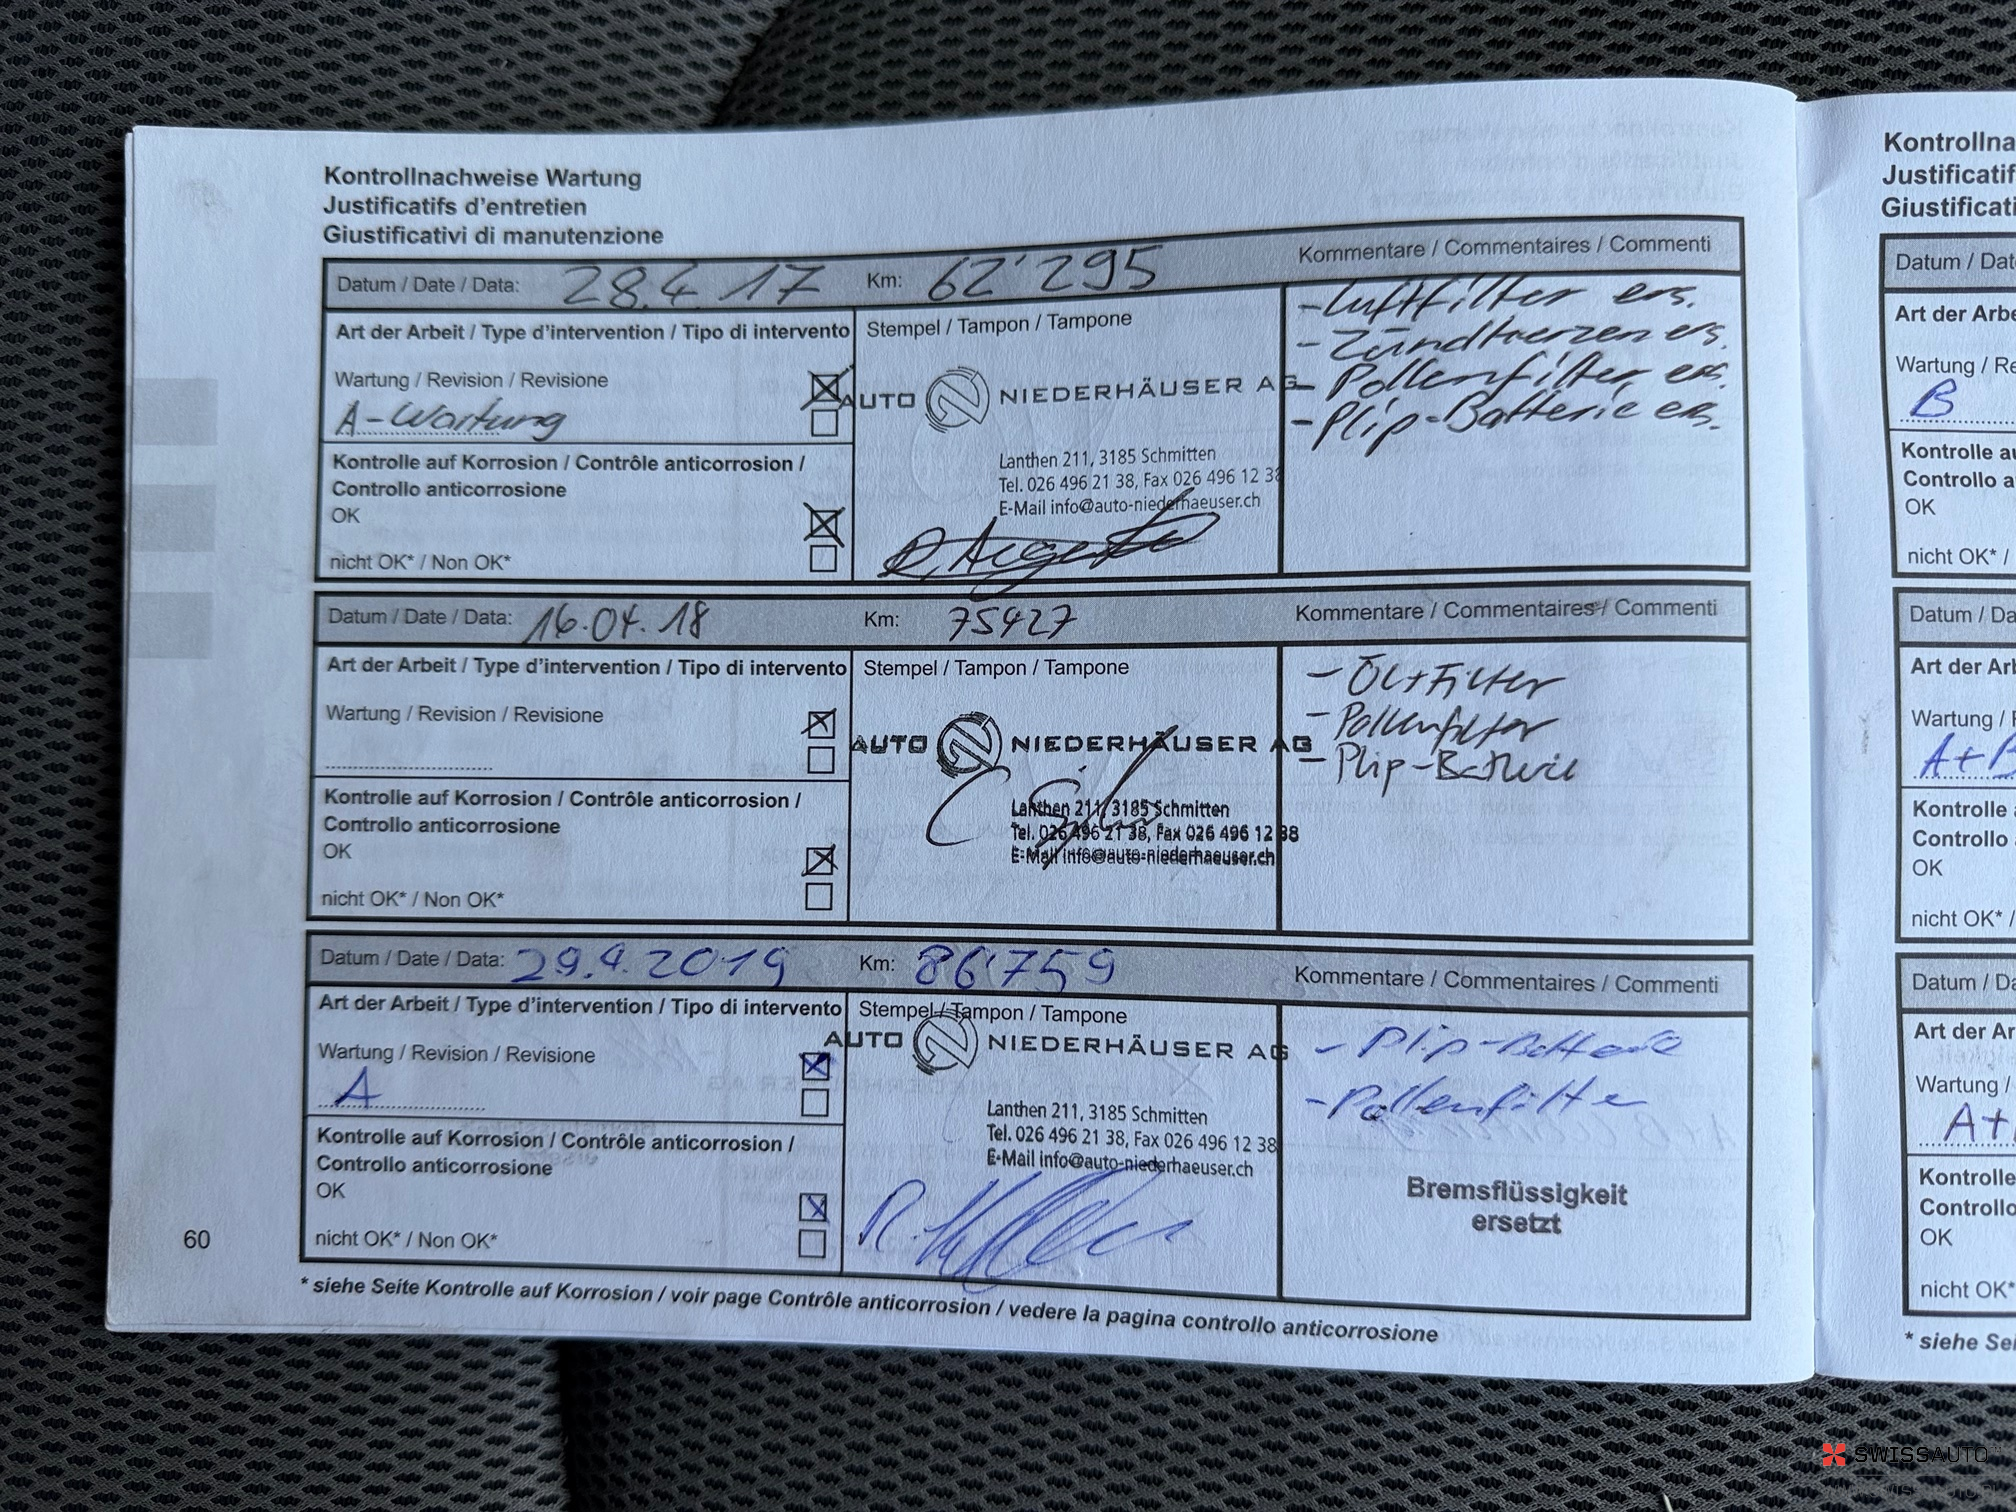 Kontrollnachweise Wartung
Justificatifs d'entretien
Giustificativi di manutenzione
Datum / Date / Data: 28.4.17 Km: 62'295 Kommentare / Commentaires / Commenti
Art der Arbeit / Type d'intervention / Tipo di intervento
Wartung / Revision / Revisione
A-Wartung
Kontrolle auf Korrosion / Contrôle anticorrosion /
Controllo anticorrosione
OK
nicht OK* / Non OK*
Stempel / Tampon / Tampone
AUTO NIEDERHÄUSER AG
Lanthen 211, 3185 Schmitten
Tel. 026 496 21 38, Fax 026 496 12 38
E-Mail info@auto-niederhaeuser.ch
- Luftfilter ers.
- Zündkerzen ers.
- Pollenfilter ers.
- Plip-Batterie ers.
Datum / Date / Data: 16.04.18 Km: 75427 Kommentare / Commentaires / Commenti
Art der Arbeit / Type d'intervention / Tipo di intervento
Wartung / Revision / Revisione
Kontrolle auf Korrosion / Contrôle anticorrosion /
Controllo anticorrosione
OK
nicht OK* / Non OK*
Stempel / Tampon / Tampone
AUTO NIEDERHÄUSER AG
Lanthen 211, 3185 Schmitten
Tel. 026 496 21 38, Fax 026 496 12 38
E-Mail info@auto-niederhaeuser.ch
- Öl+Filter
- Pollenfilter
- Plip-Batterie
Datum / Date / Data: 29.4.2019 Km: 86'759 Kommentare / Commentaires / Commenti
Art der Arbeit / Type d'intervention / Tipo di intervento
Wartung / Revision / Revisione
A
Kontrolle auf Korrosion / Contrôle anticorrosion /
Controllo anticorrosione
OK
nicht OK* / Non OK*
Stempel / Tampon / Tampone
AUTO NIEDERHÄUSER AG
Lanthen 211, 3185 Schmitten
Tel. 026 496 21 38, Fax 026 496 12 38
E-Mail info@auto-niederhaeuser.ch
- Plip-Batterie
- Pollenfilter
Bremsflüssigkeit
ersetzt
60
* siehe Seite Kontrolle auf Korrosion / voir page Contrôle anticorrosion / vedere la pagina controllo anticorrosione
Datum /
Art der
Wartung /
B
Kontrolle
Controllo
OK
nicht OK* /
Datum /
Art der
Wartung /
A+B
Kontrolle
Controllo
OK
nicht OK* /
Datum /
Art der
Wartung /
A+
Kontrolle
Controllo
OK
nicht OK*
* siehe
SWISSAUTO